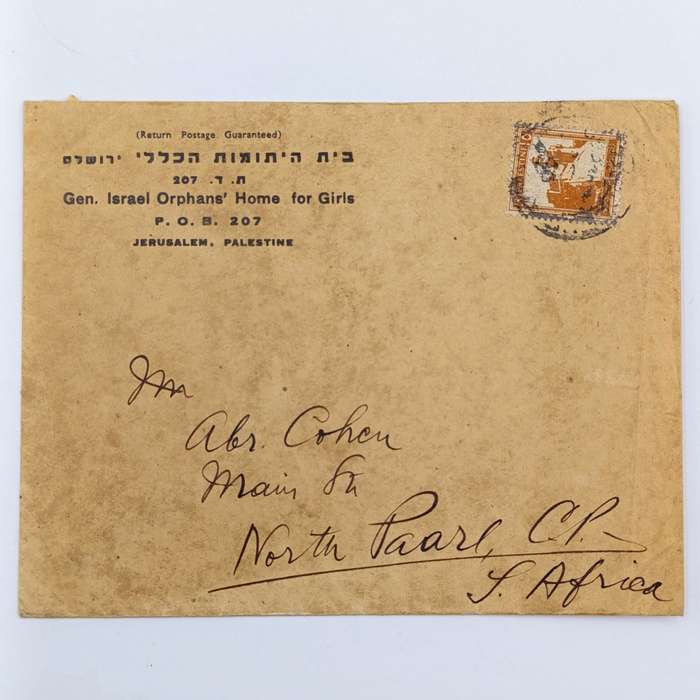 (Return Postage Guaranteed)
בית היתומות הכללי ירושלם
ת. ד. 207
Gen. Israel Orphans' Home for Girls
P. O. B. 207
JERUSALEM, PALESTINE
Mr
Abr. Cohen
Main Str
North Paarl, C.P.
S. Africa